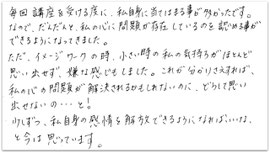 毎回講座を受ける度に、私自身に当てはまる事が多かったです。
なので、だんだんと、私の心に問題が存在しているのを認める事が
できるようになってきました。
ただ、イメージワークの時、小さい時の私の気持ちがほとんど
思い出せず、嫌な感じもしました。これが分かりさえすれば、
私の心の問題が解決されるかもしれないのに、どうして思い
出せないの…と!
少しずつ、私自身の感情を解放できるようになればいいな、
と今は思っています。